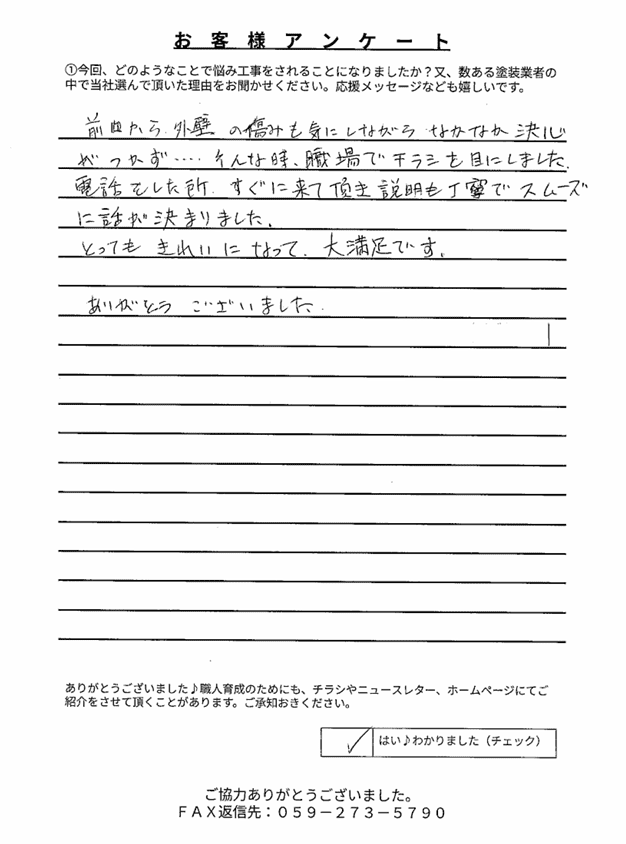 お客様アンケート
①今回、どのようなことで悩み工事をされることになりましたか？又、数ある塗装業者の
中で当社選んで頂いた理由をお聞かせください。応援メッセージなども嬉しいです。
前回から、外壁の傷みも気にしながら なかなか決心
がつかず‥‥そんな時、職場でチラシを目にしました。
電話をした所、すぐに来て頂き説明も丁寧でスムーズ
に話が決まりました。
とってもきれいになって、大満足です。
ありがとうございました。
ありがとうございました♪職人育成のためにも、チラシやニュースレター、ホームページにてご
紹介をさせて頂くことがあります。ご承知おきください。
はい♪わかりました（チェック）
ご協力ありがとうございました。
ＦＡＸ返信先：０５９－２７３－５７９０